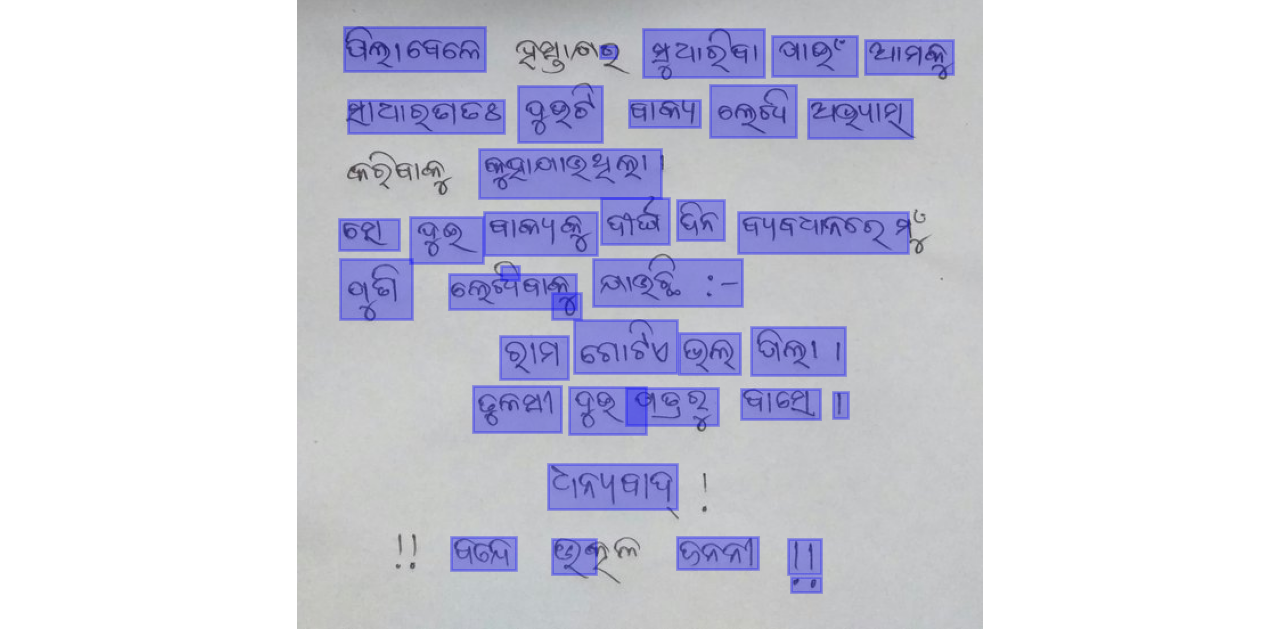 ପିଲାବେଳେ ହସ୍ତାକ୍ଷର ସୁଧାରିବା ପାଇଁ ଆମକୁ
ସାଧାରଣତଃ ଦୁଇଟି ବାକ୍ୟ ଲେଖି ଅଭ୍ୟାସ
କରିବାକୁ କୁହାଯାଇଥିଲା ।
ସେ ଦୁଇ ବାକ୍ୟକୁ ଦୀର୍ଘ ଦିନ ବ୍ୟବଧାନରେ ମୁଁ
ପୁଣି ଲେଖିବାକୁ ଯାଉଛି :-
ରାମ ଗୋଟିଏ ଭଲ ପିଲା ।
ତୁଳସୀ ଦୁଇ ପତ୍ରରୁ ବାସେ ।
ଧନ୍ୟବାଦ୍ !
!! ବନ୍ଦେ ଉତ୍କଳ ଜନନୀ !!